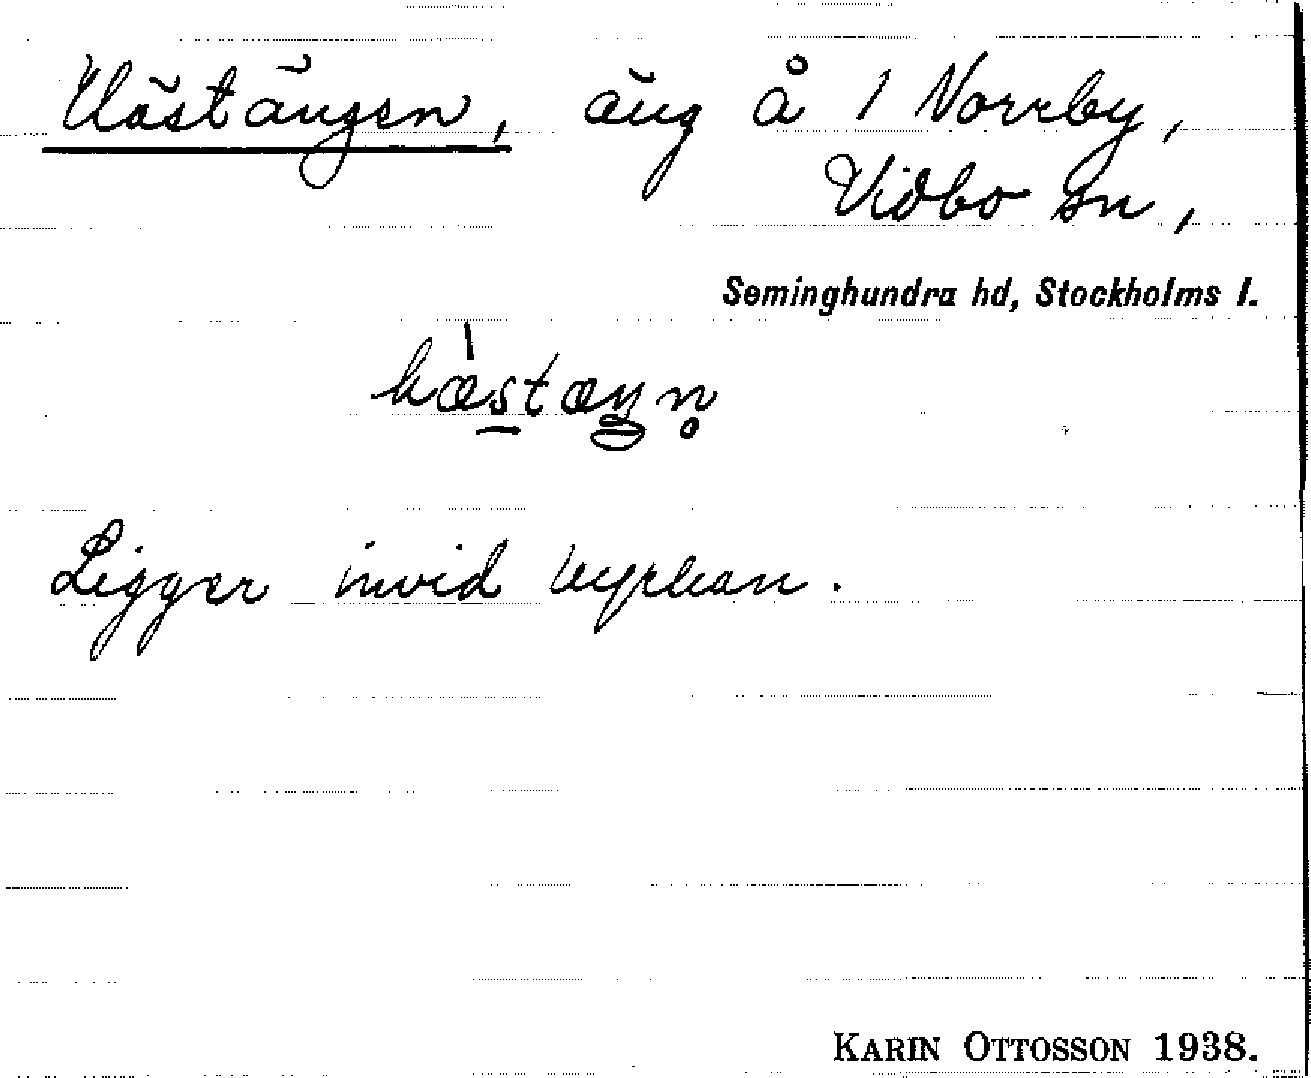 Hästängen, äng å 1 Norrby,
Vidbo sn,
Seminghundra hd, Stockholms l.
hæstæŋn̥
Ligger invid kyrkan.
KARIN OTTOSSON 1938.